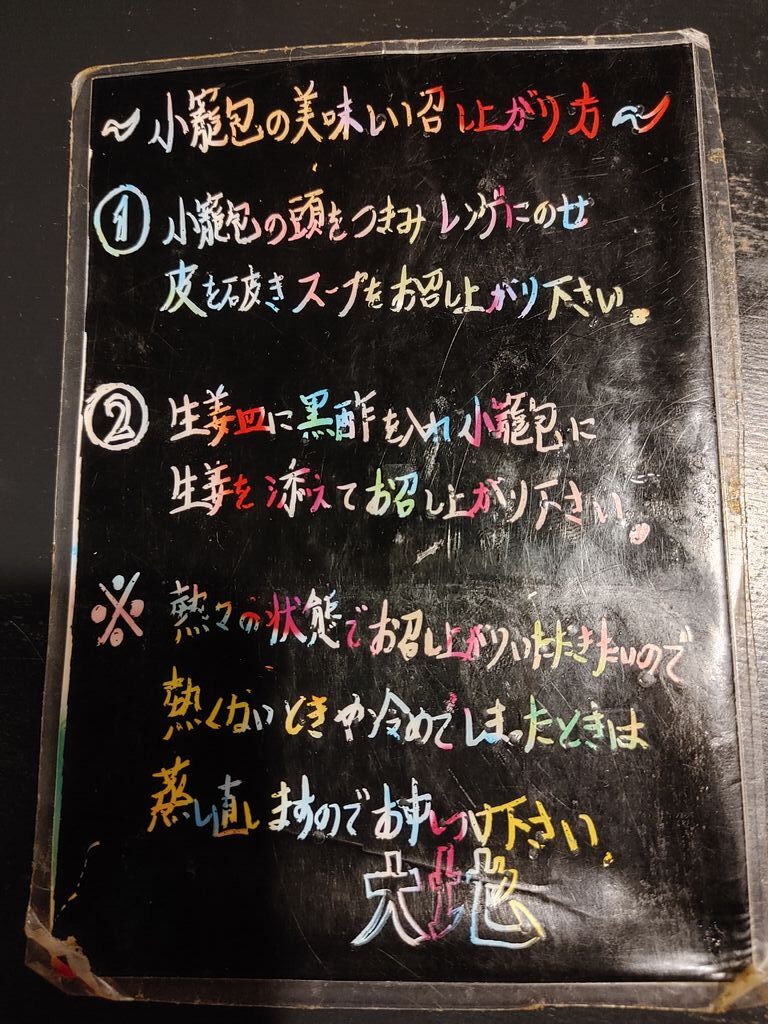 ~小籠包の美味しい召し上がり方~
① 小籠包の頭をつまみレンゲにのせ
皮を破きスープをお召し上がり下さい。
② 生姜皿に黒酢を入れ小籠包に
生姜を添えてお召し上がり下さい。
※ 熱々の状態でお召し上がりいただきたいので
熱くないときや冷めてしまったときは
蒸し直しますのでお申しつけ下さい。
大地